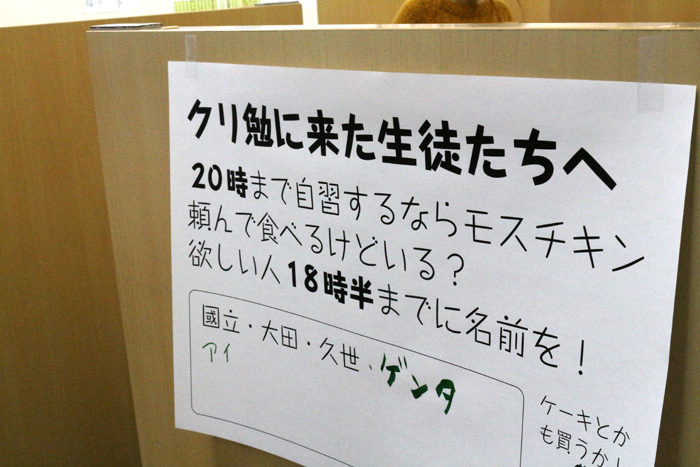 クリ勉に来た生徒たちへ
20時まで自習するならモスチキン
頼んで食べるけどいる？
欲しい人18時半までに名前を！
國立・大田・久世、ゲンタ
アイ
ケーキとか
も買うか！